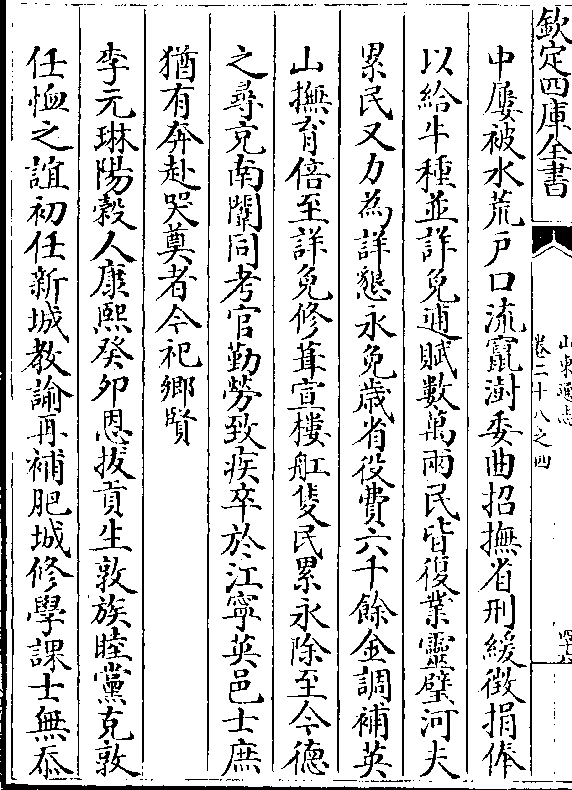 欽定四庫全書
山東通志
卷二十八之四
中屢被水荒戶口流竄澍委曲招撫省刑緩徵捐俸
以給牛種並詳免逋賦數萬兩民皆復業靈璧河夫
累民又力為詳懇永免歲省役費六千餘金調補英
山撫育倍至詳免修葺宣樓舡隻民累永除至今德
之尋充南闈同考官勤勞致疾卒於江寧英邑士庶
猶有奔赴哭奠者今祀鄉賢
李元琳陽穀人康熙癸卯恩拔貢生敦族睦黨克敦
任恤之誼初任新城教諭再補肥城修學課士無忝